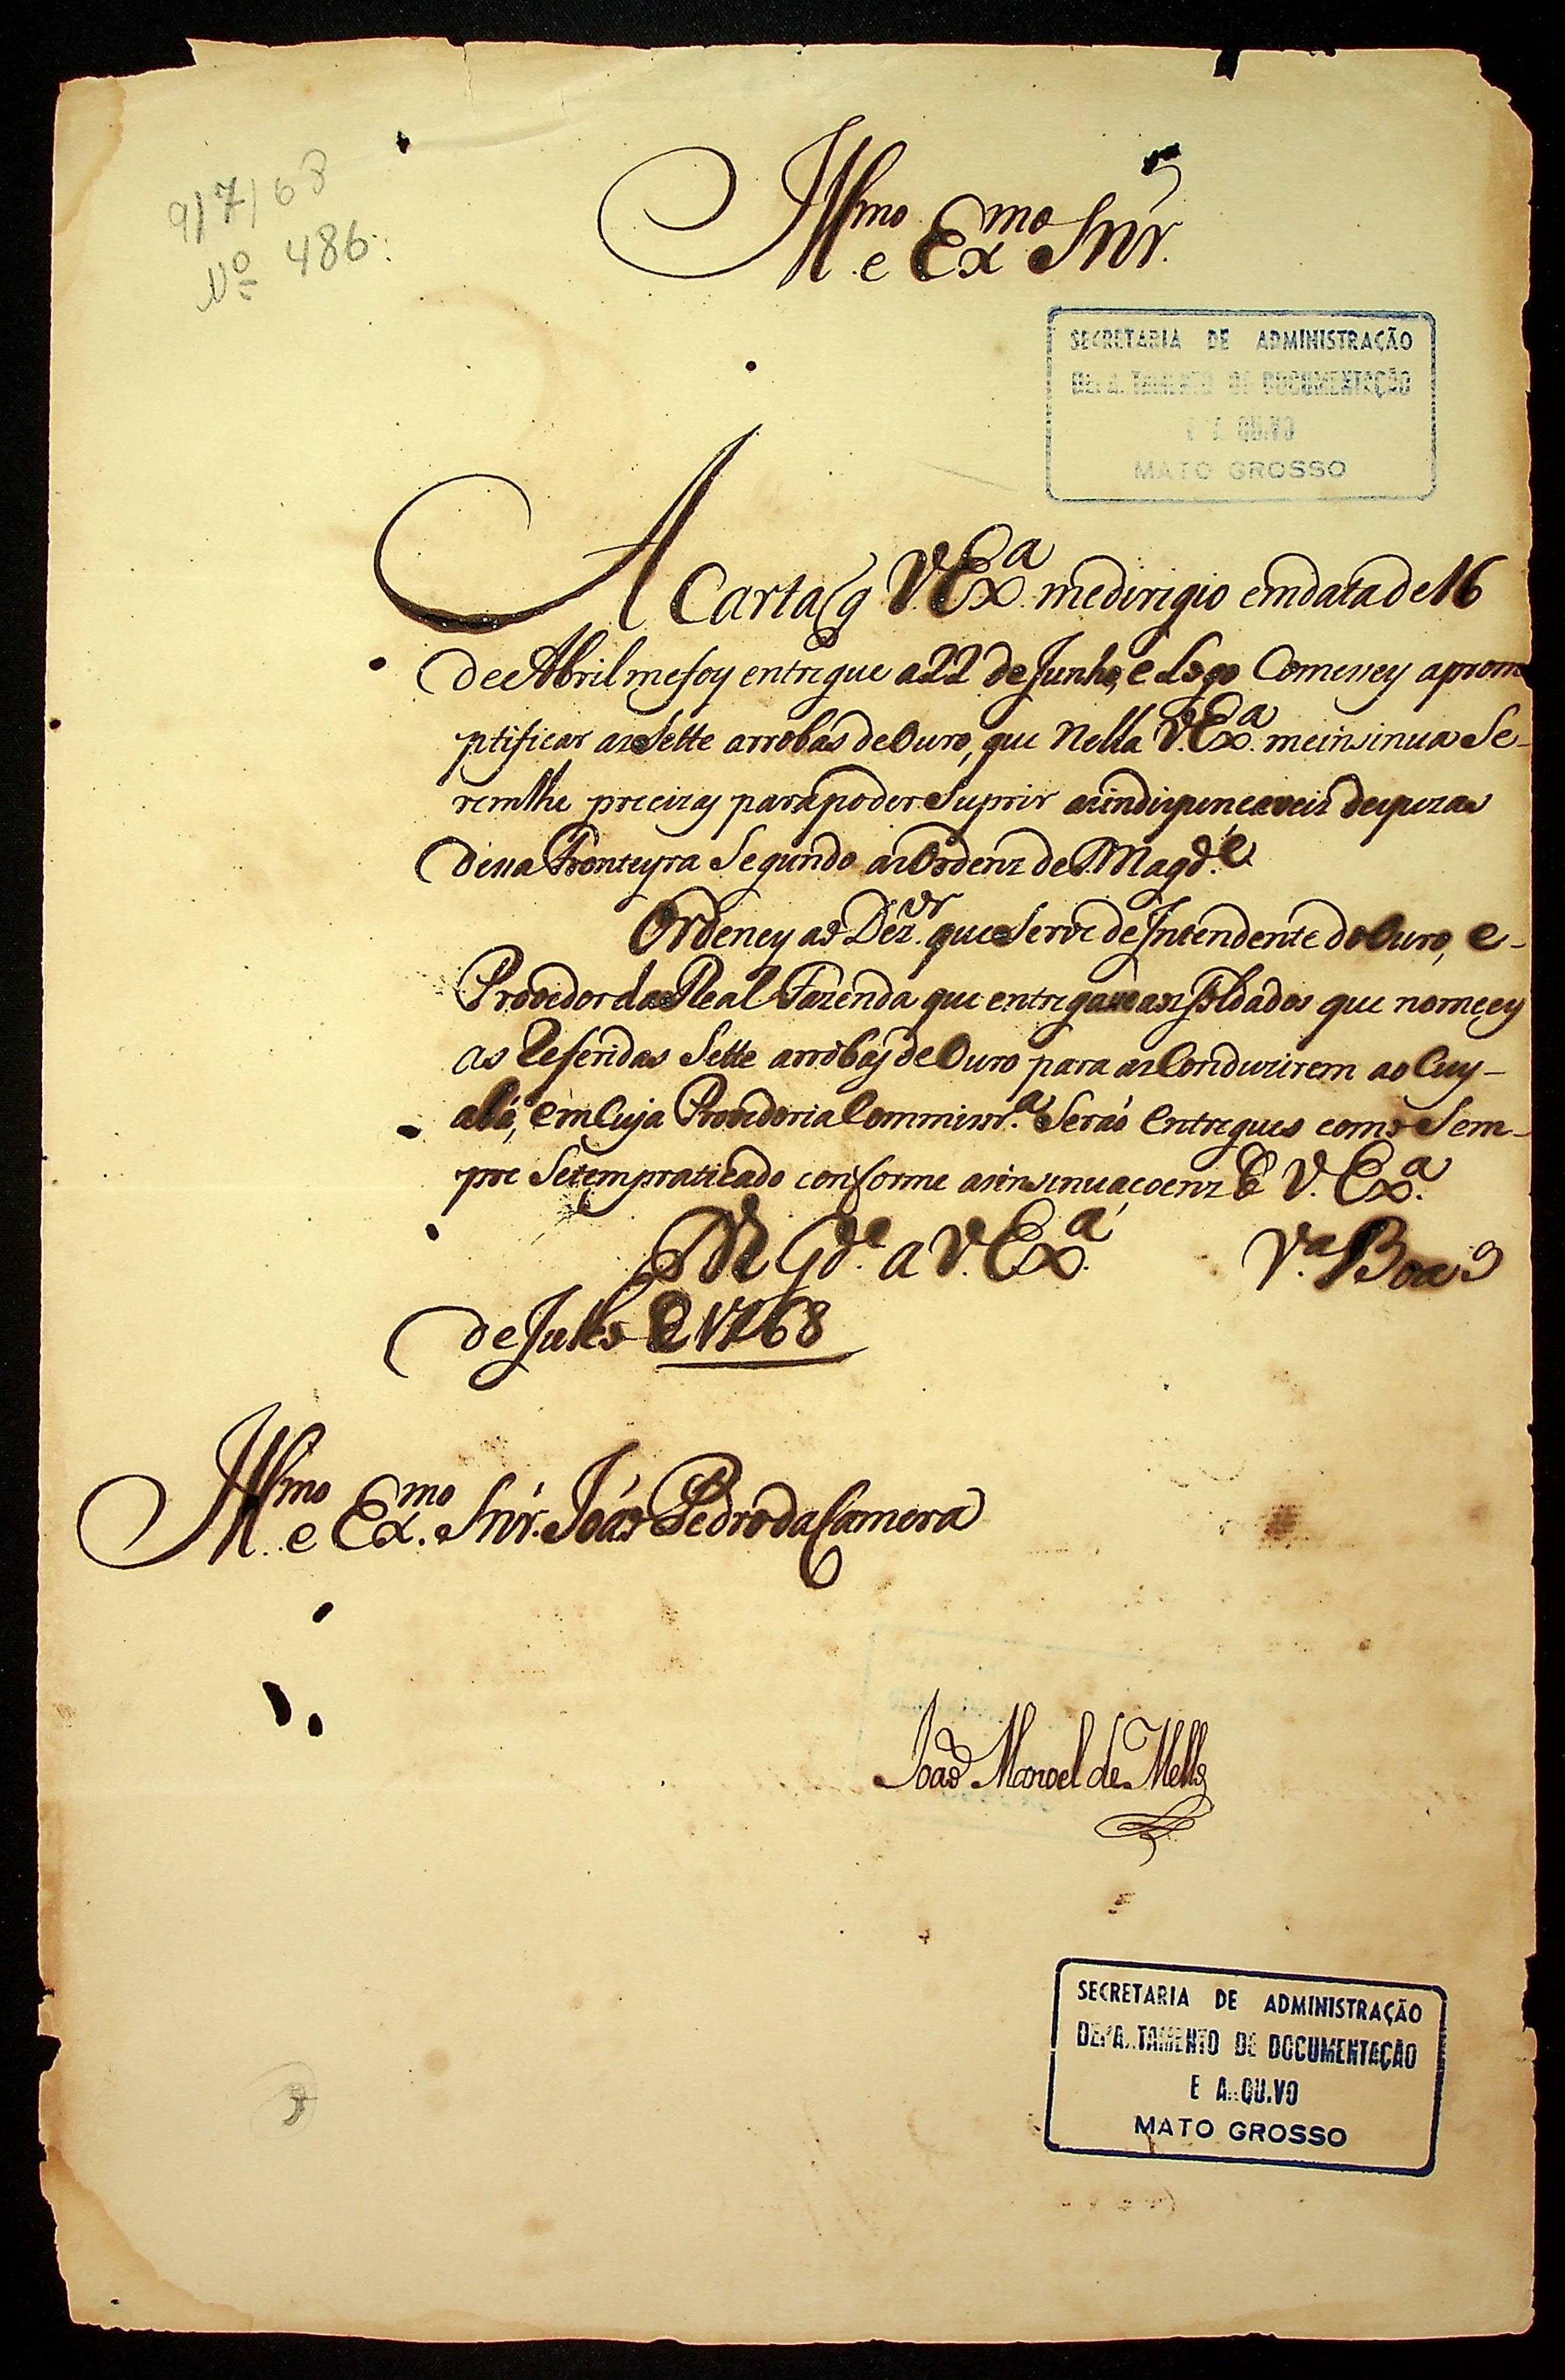 9/7/68
Nº 486.
Illmo e Exmo Snr.
SECRETARIA DE ADMINISTRAÇÃO
DEPARTAMENTO DE DOCUMENTAÇÃO
E ARQUIVO
MATO GROSSO
A Carta q V. Exª. me dirigio em data de 16
de Abril me foy entregue a 22 de Junho, e Logo Comessey a prom
ptificar as Sette arrobas de Ouro, que Nella V. Exª. me insinua Se-
rem lhe precizas para poder Suprir as indispencaveis despezas
dessa Fronteyra Segundo as Ordenz de S. Magd.e
Ordeney ao Dez.or que Serve de Intendente do Ouro, e-
Provedor da Real Fazenda que entregasse aos Soldados que nomeey
as Referidas Sette arrobas de Ouro para as Conduzirem ao Cuy-
abá, em Cuja Provedoria Commissr.a Seráõ Entregues como Sem-
pre Se tem praticado conforme as insinuacoenz de V. Exª.
Ds Gde. a V. Exª. Vª Boa 9
de Julho de 1768
Illmo e Exmo. Snr. Joáo Pedro da Camera
Joaõ Manoel de Mello
SECRETARIA DE ADMINISTRAÇÃO
DEPARTAMENTO DE DOCUMENTAÇÃO
E ARQUIVO
MATO GROSSO